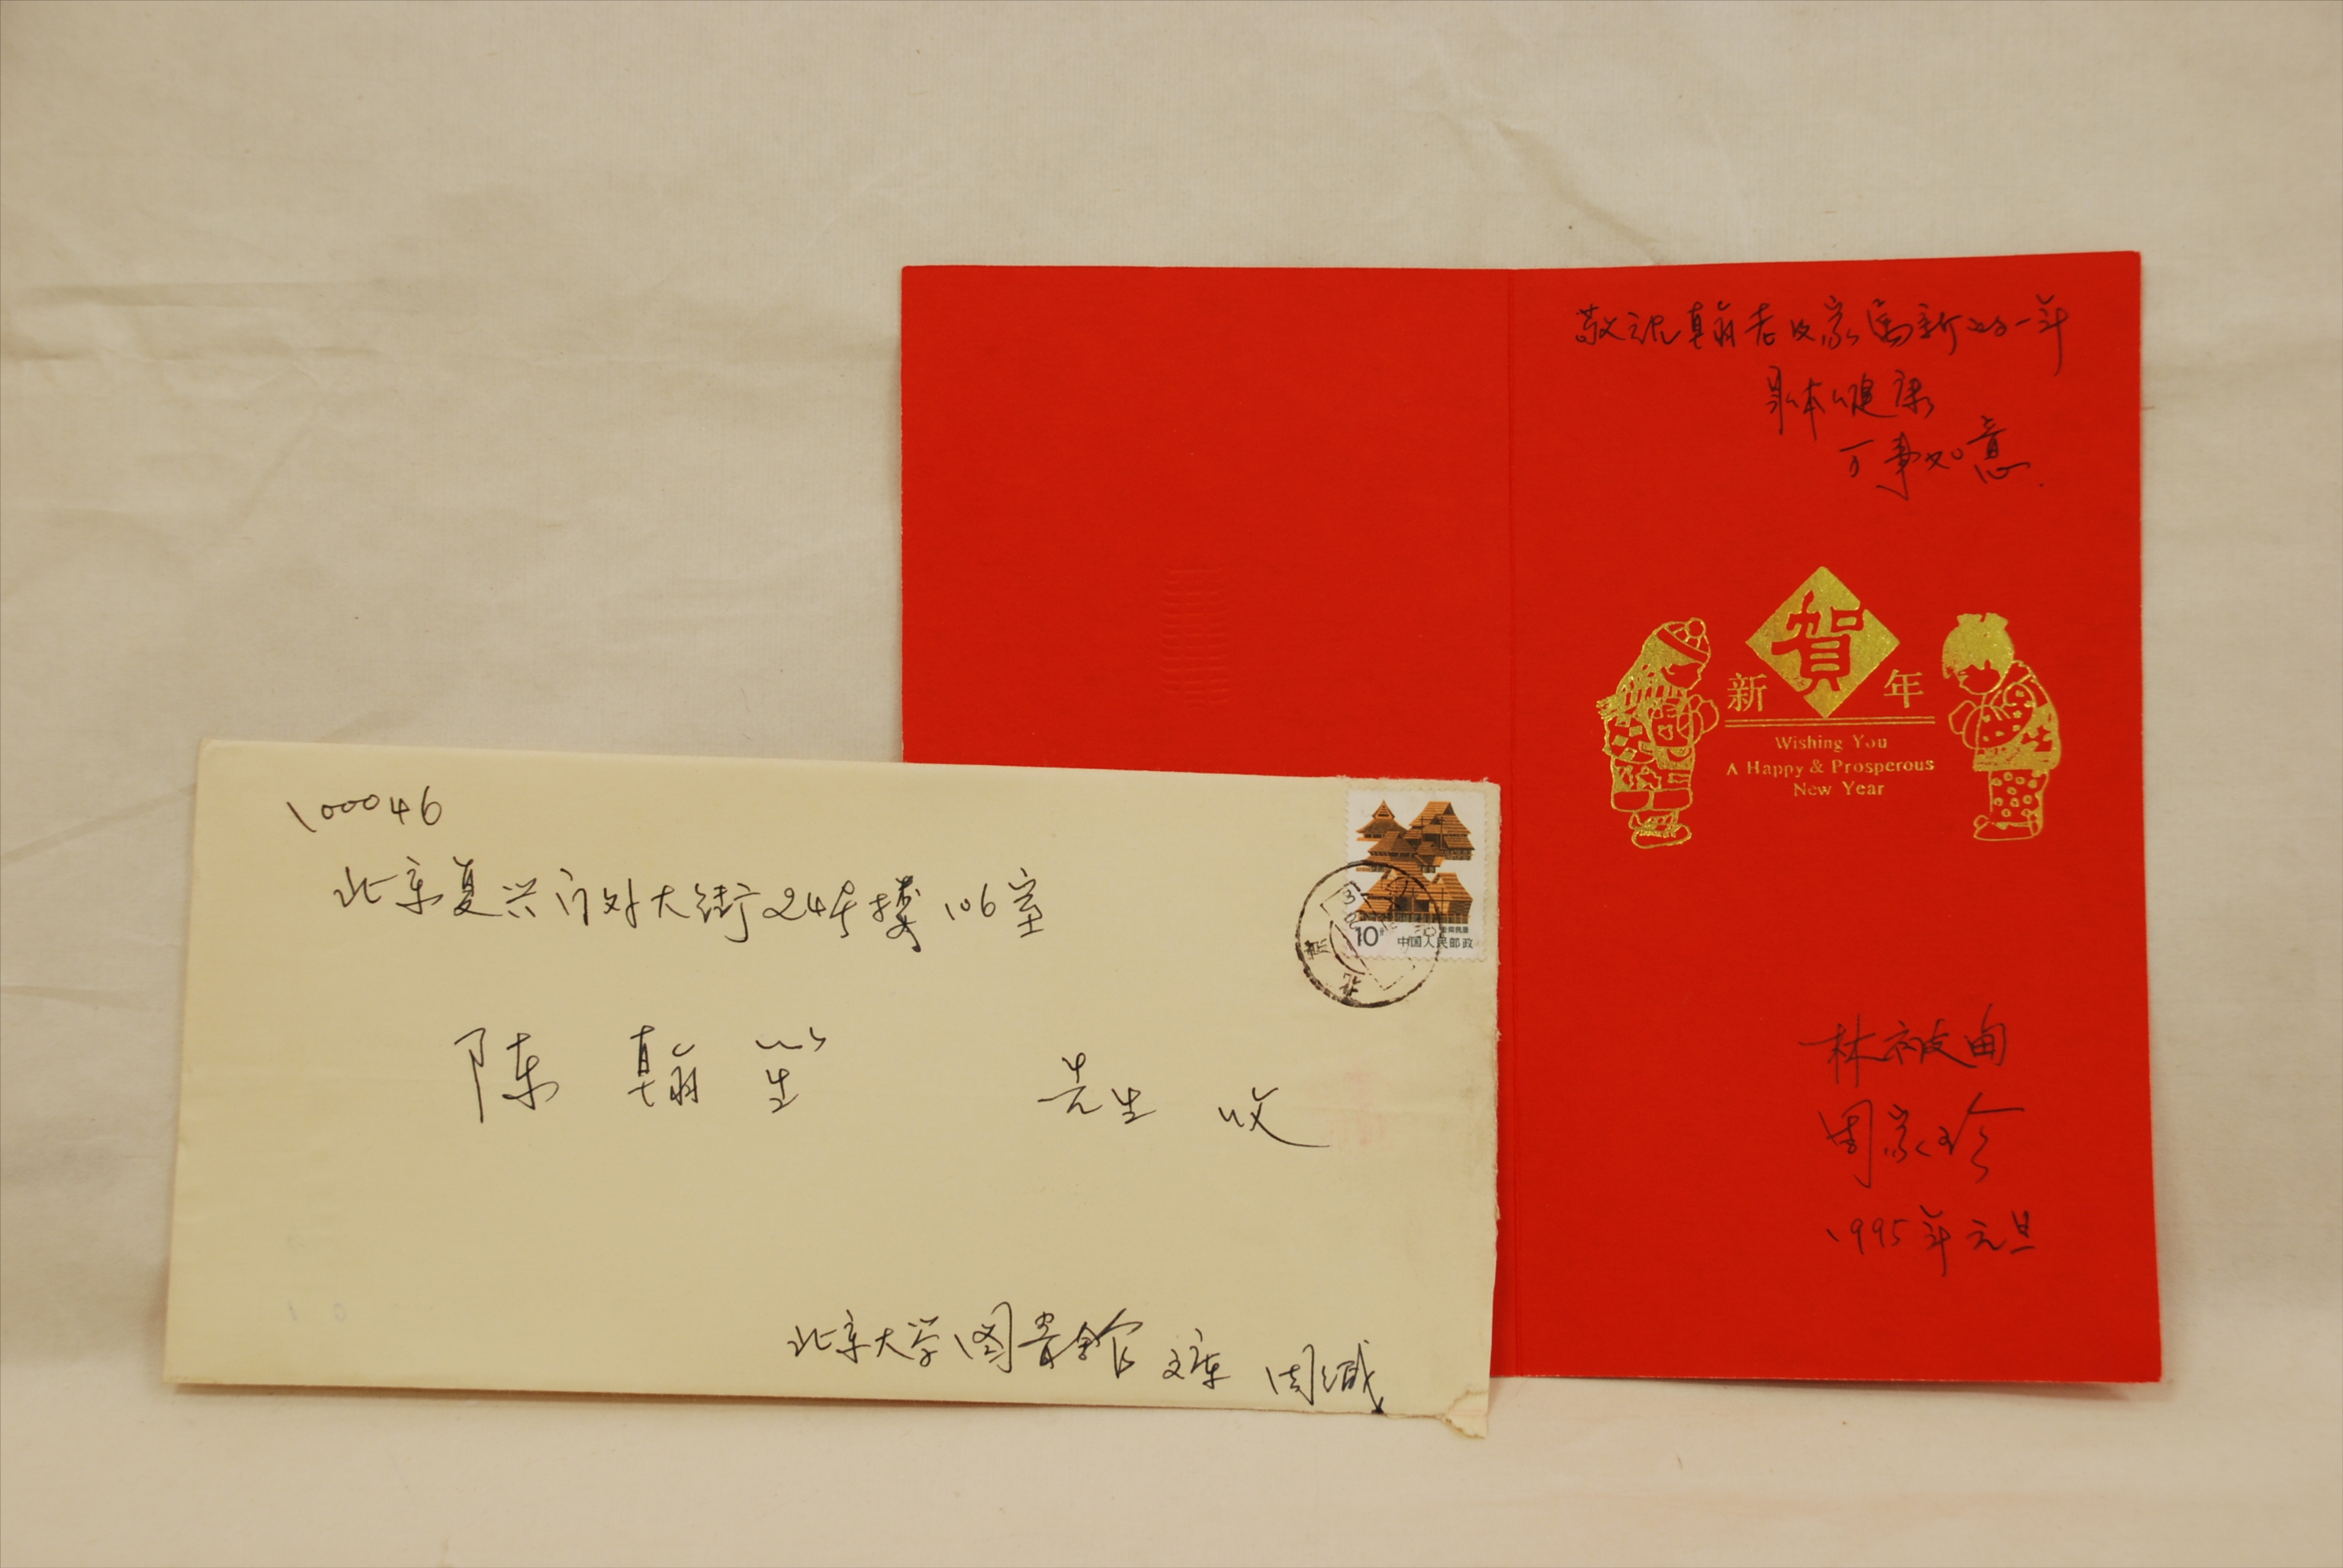 100046
北京复兴门外大街24号楼106室
陈翰笙 先生 收
北京大学图书馆文库 周缄
10分
中国人民邮政
北京
敬祝翰老及家属新的一年
身体健康
万事如意.
賀
新年
Wishing You
A Happy & Prosperous
New Year
林被甸
周家珍
1995年元旦